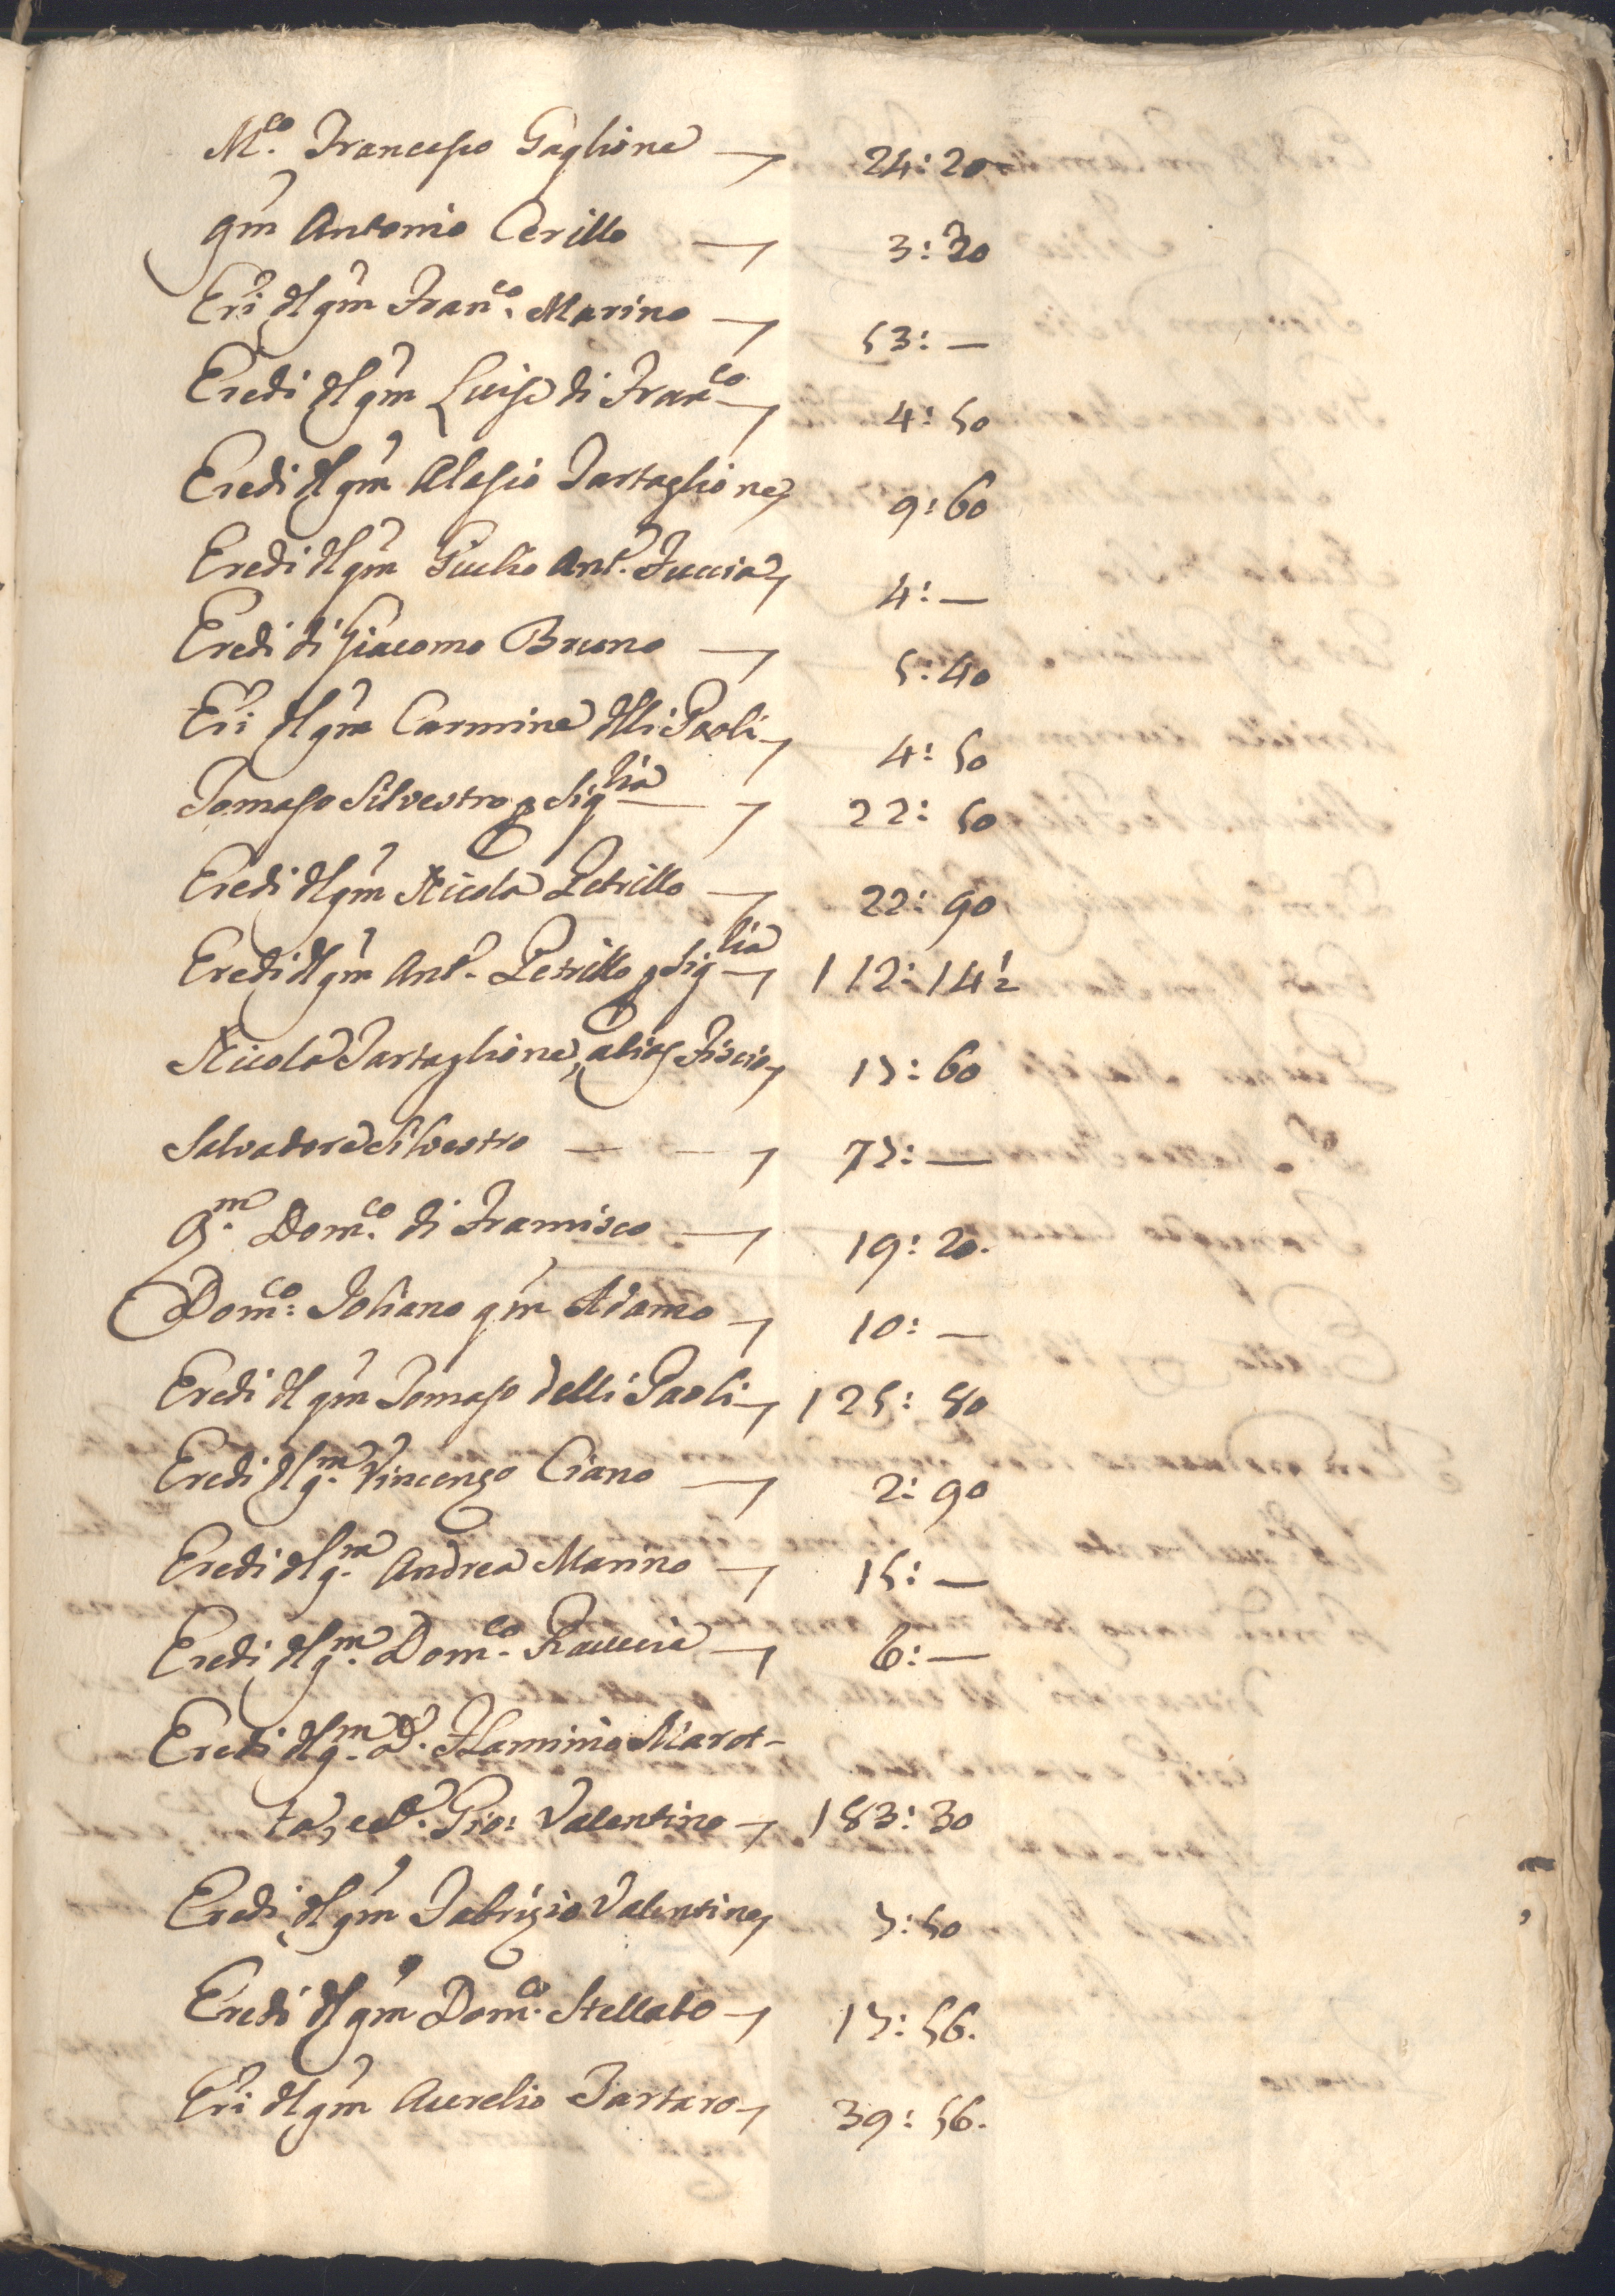 M.co Francesco Gaglione — 24:20
qm Antonio Cerillo — 3:20
Eri dl qm Fran.co Marino — 53:—
Eredi dl qm Luise di Fran.co — 4:50
Eredi dl qm Alesio Tartaglione 9:60
Eredi dl qm Giulio Ant.o Fuccia 4:—
Eredi di Giacomo Bruno — 5:40
Eri dl qm Carmine dlli Paoli — 4:50
Tomaso Silvestro p Sig.lia — 22:50
Eredi dl qm Nicola Petrillo — 22:90
Eredi dl qm Ant.o Petrillo p Sig.lia 112:14½
Nicola Tartaglione, alias Fiscio 13:60
Salvadore Silvestro — — 73:—
q.m Dom.co di Framisco — 19:20.
Dom.co: Joliano qm Adamo — 10:—
Eredi dl qm Tomaso delli Paoli — 125:80
Eredi dl q.m Vincenzo Ciano — 2:90
Eredi dl q.m Andrea Marino — 15:—
Eredi dl q.m Dom.co Rauccia — 6:—
Eredi dl q.m D. Flaminio Marot-
ta, e D. Gio: Valentino — 183:30
Eredi dl qm Fabrizio Valentino 3:50
Eredi dl qm Dom.co Stellato — 13:56.
Eri dl qm Aurelio Tartaro — 39:56.